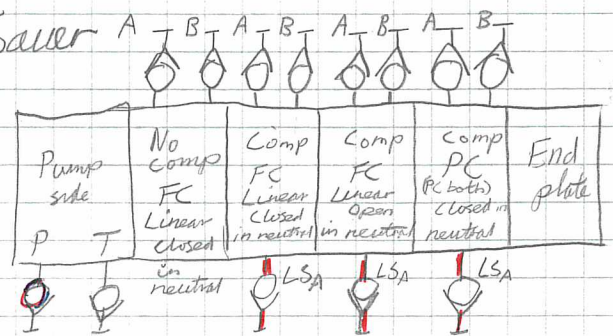 Sauer
A B A B A B A B
Pump
side
P T
No
comp
FC
Linear
closed
in
neutral
Comp
FC
Linear
closed
in neutral
Comp
FC
Linear
Open
in neutral
comp
PC
(PC both)
closed in
neutral
End
plate
LSA LSA LSA